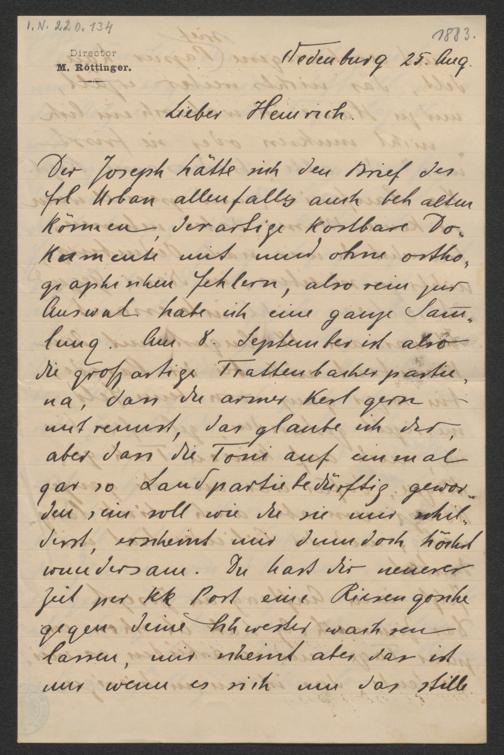 I.N. 220.134
1883.
Director
M. Röttinger.
Oedenburg 25 Aug.
Lieber Heinrich.
Der Joseph hätte sich den Brief des
Frl. Urban allenfalls auch behalten
können, derartige kostbare Do-
kumente mit und ohne ortho-
graphischen Fehlern, also rein zur
Auswal habe ich eine ganze Sam-
lung. Am 8. September ist also
die großartige Trattenbacherpartie,
na, dass du armer Kerl gern
mitrennst, das glaube ich dir,
aber dass die Toni auf einmal
gar so Landpartiebedürftig gewor-
den sein soll wie du sie mir schil-
derst, erscheint mir denn doch höchst
wundersam. Du hast dir neuerer
Zeit per kk Post eine Riesengosche
gegen deine Schwester wachsen
lassen, mir scheint aber das ist
nur wenn es sich um das stille